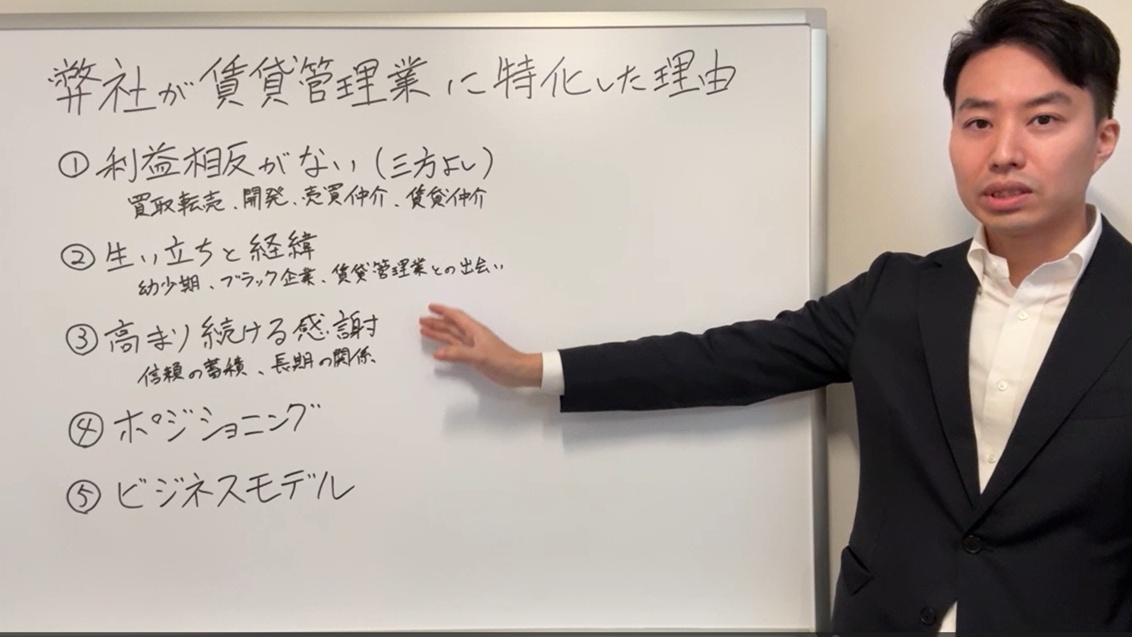 弊社が賃貸管理業に特化した理由
① 利益相反がない(三方よし)
買取転売、開発、売買仲介、賃貸仲介
② 生い立ちと経緯
幼少期、ブラック企業、賃貸管理業との出会い
③ 高まり続ける感謝
信頼の蓄積、長期の関係
④ ポジショニング
⑤ ビジネスモデル